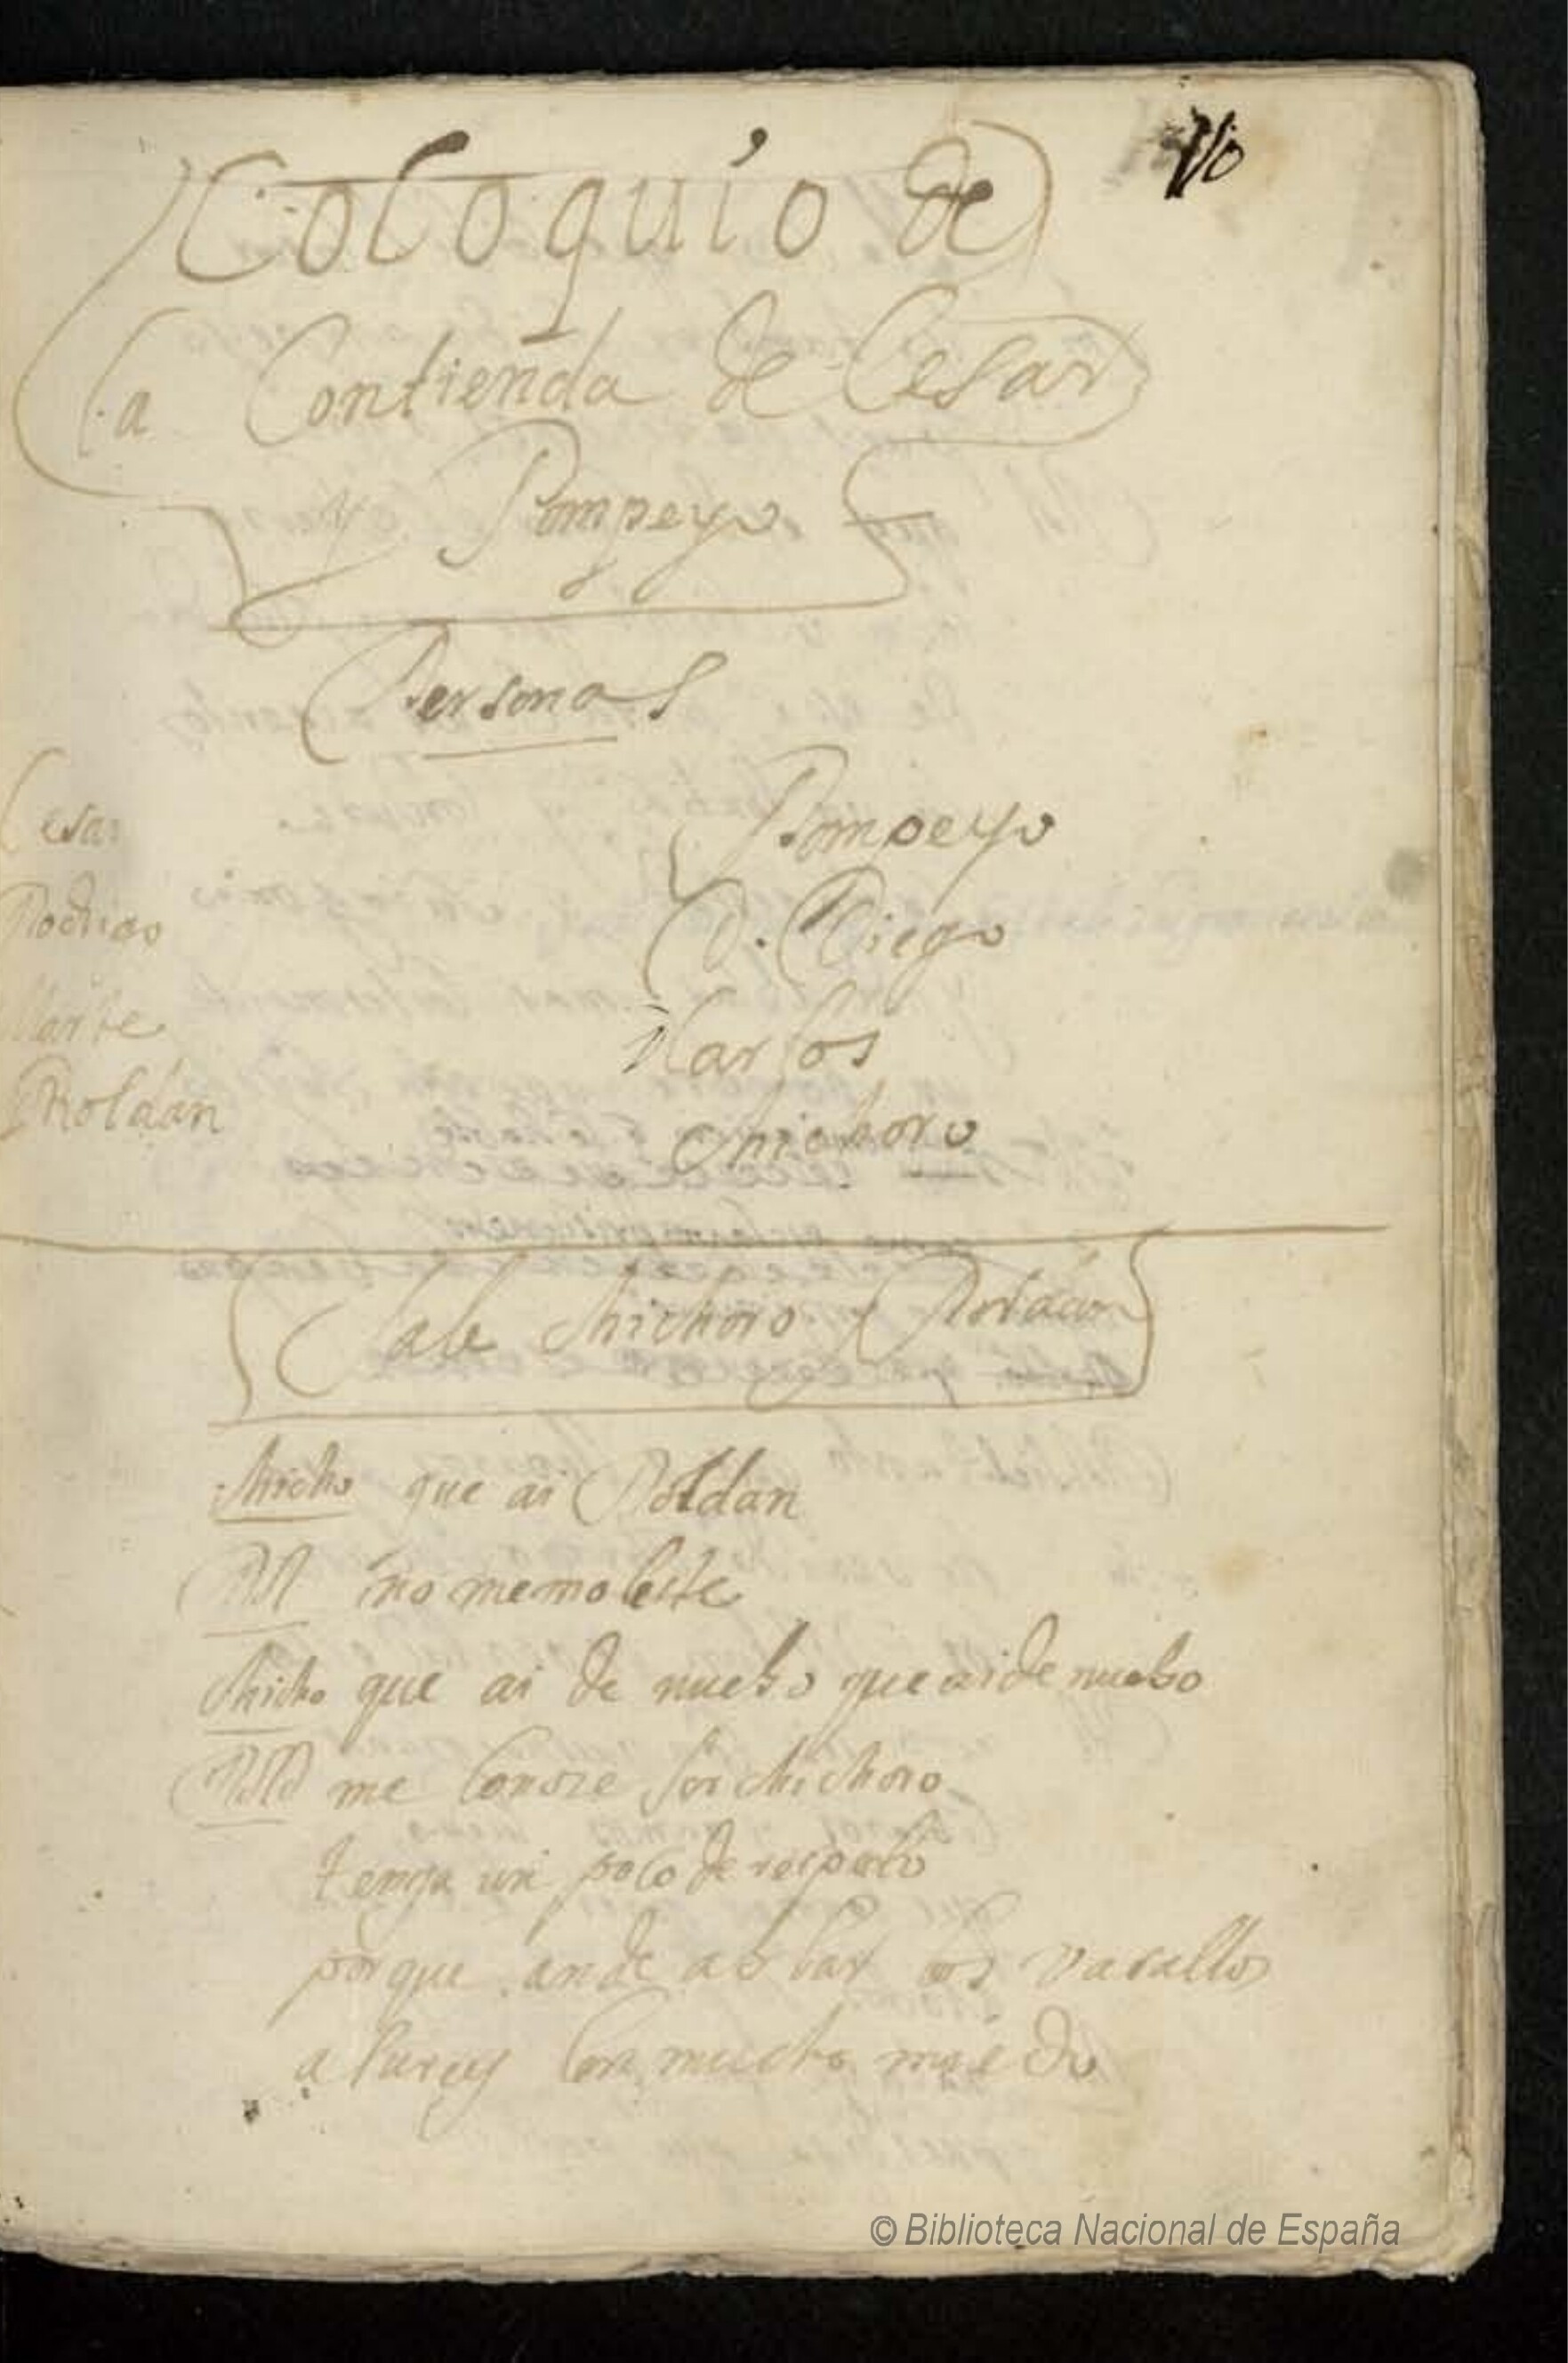 10
Coloquio de
la Contienda de Cesar
y Pompeyo
Personas
Cesar Pompeyo
Rodrigo D. Diego
Marte Marcos
Roldán Chichoro
Sale Chichoro y Roldán
Chicho que ai Roldan
Rol no memoleste
Chicho que ai de nuebo que aide nuebo
Rold me conoze sor chichoro
tenga un poco de respeto
porque ande ablar los vasallos
a surey con mucho miedo
© Biblioteca Nacional de España